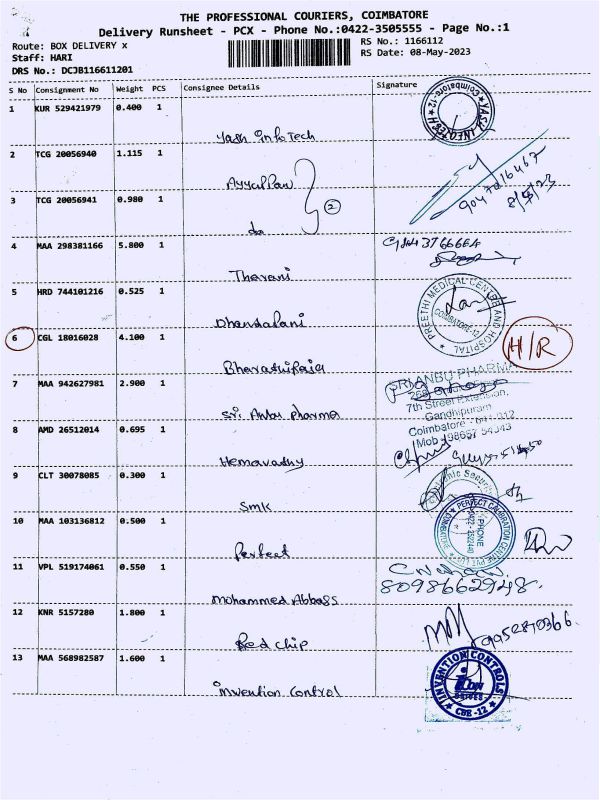 THE PROFESSIONAL COURIERS, COIMBATORE
Delivery Runsheet - PCX - Phone No.:0422-3505555 - Page No.:1
Route: BOX DELIVERY x
RS No.: 1166112
Staff: HARI
RS Date: 08-May-2023
DRS No.: DCJB116611201
S No Consignment No Weight PCS Consignee Details Signature
1 KUR 529421979 0.400 1
Yash infoTech
YASH INFOTECH Coimbatore-12
2 TCG 20056940 1.115 1
Ayyappan
3 TCG 20056941 0.980 1
2
do
8/5/23
4 MAA 298381166 5.800 1
Tharani
5 HRD 744101216 0.525 1
PREETHI MEDICAL CENTRE AND HOSPITAL
COIMBATORE-12
Dhandapani
6 CGL 18016028 4.100 1
H/R
Bharathiraja
7 MAA 942627981 2.900 1
SRI ANBU PHARMA
7th Street Extension,
Gandhipuram
Coimbatore - 641 012
Sri Anbu Pharma
8 AMD 26512014 0.695 1
Hemavathy
9 CLT 30078085 0.300 1
SMK
10 MAA 103136812 0.500 1
PERFECT CALIBRATION CENTRE PVT LTD
PHONE
Perfect
11 VPL 519174061 0.550 1
8098662948.
Mohammed Abbass
12 KNR 5157280 1.800 1
Red chip
13 MAA 568982587 1.600 1
INVENTION CONTROLS
CBE-12
invention Control